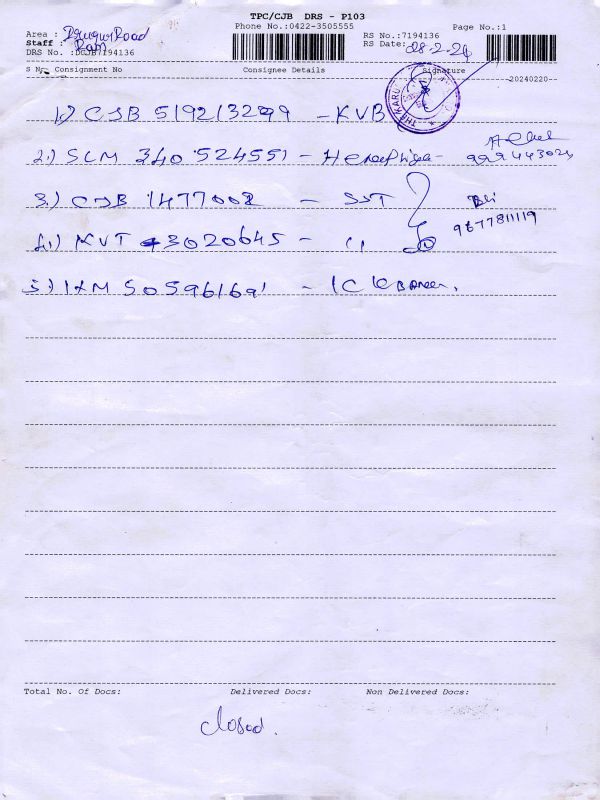 TPC/CJB DRS - P103
Phone No.:0422-3505555
Page No.:1
Area : Road
RS No.:7194136
Staff : Ram
RS Date: 28-2-24
DRS No. :DCJB7194136
S No. Consignment No Consignee Details Signature
20240220
1.) CJB 519213299 - KVB
THAKARU
2.) SLM 340524551 -
999443024
3.) CJB 1477002 - SST
9677811119
4.) KVT 3020645 - 〃
5.) IXM 505961691 -
Total No. Of Docs: Delivered Docs: Non Delivered Docs:
closed.